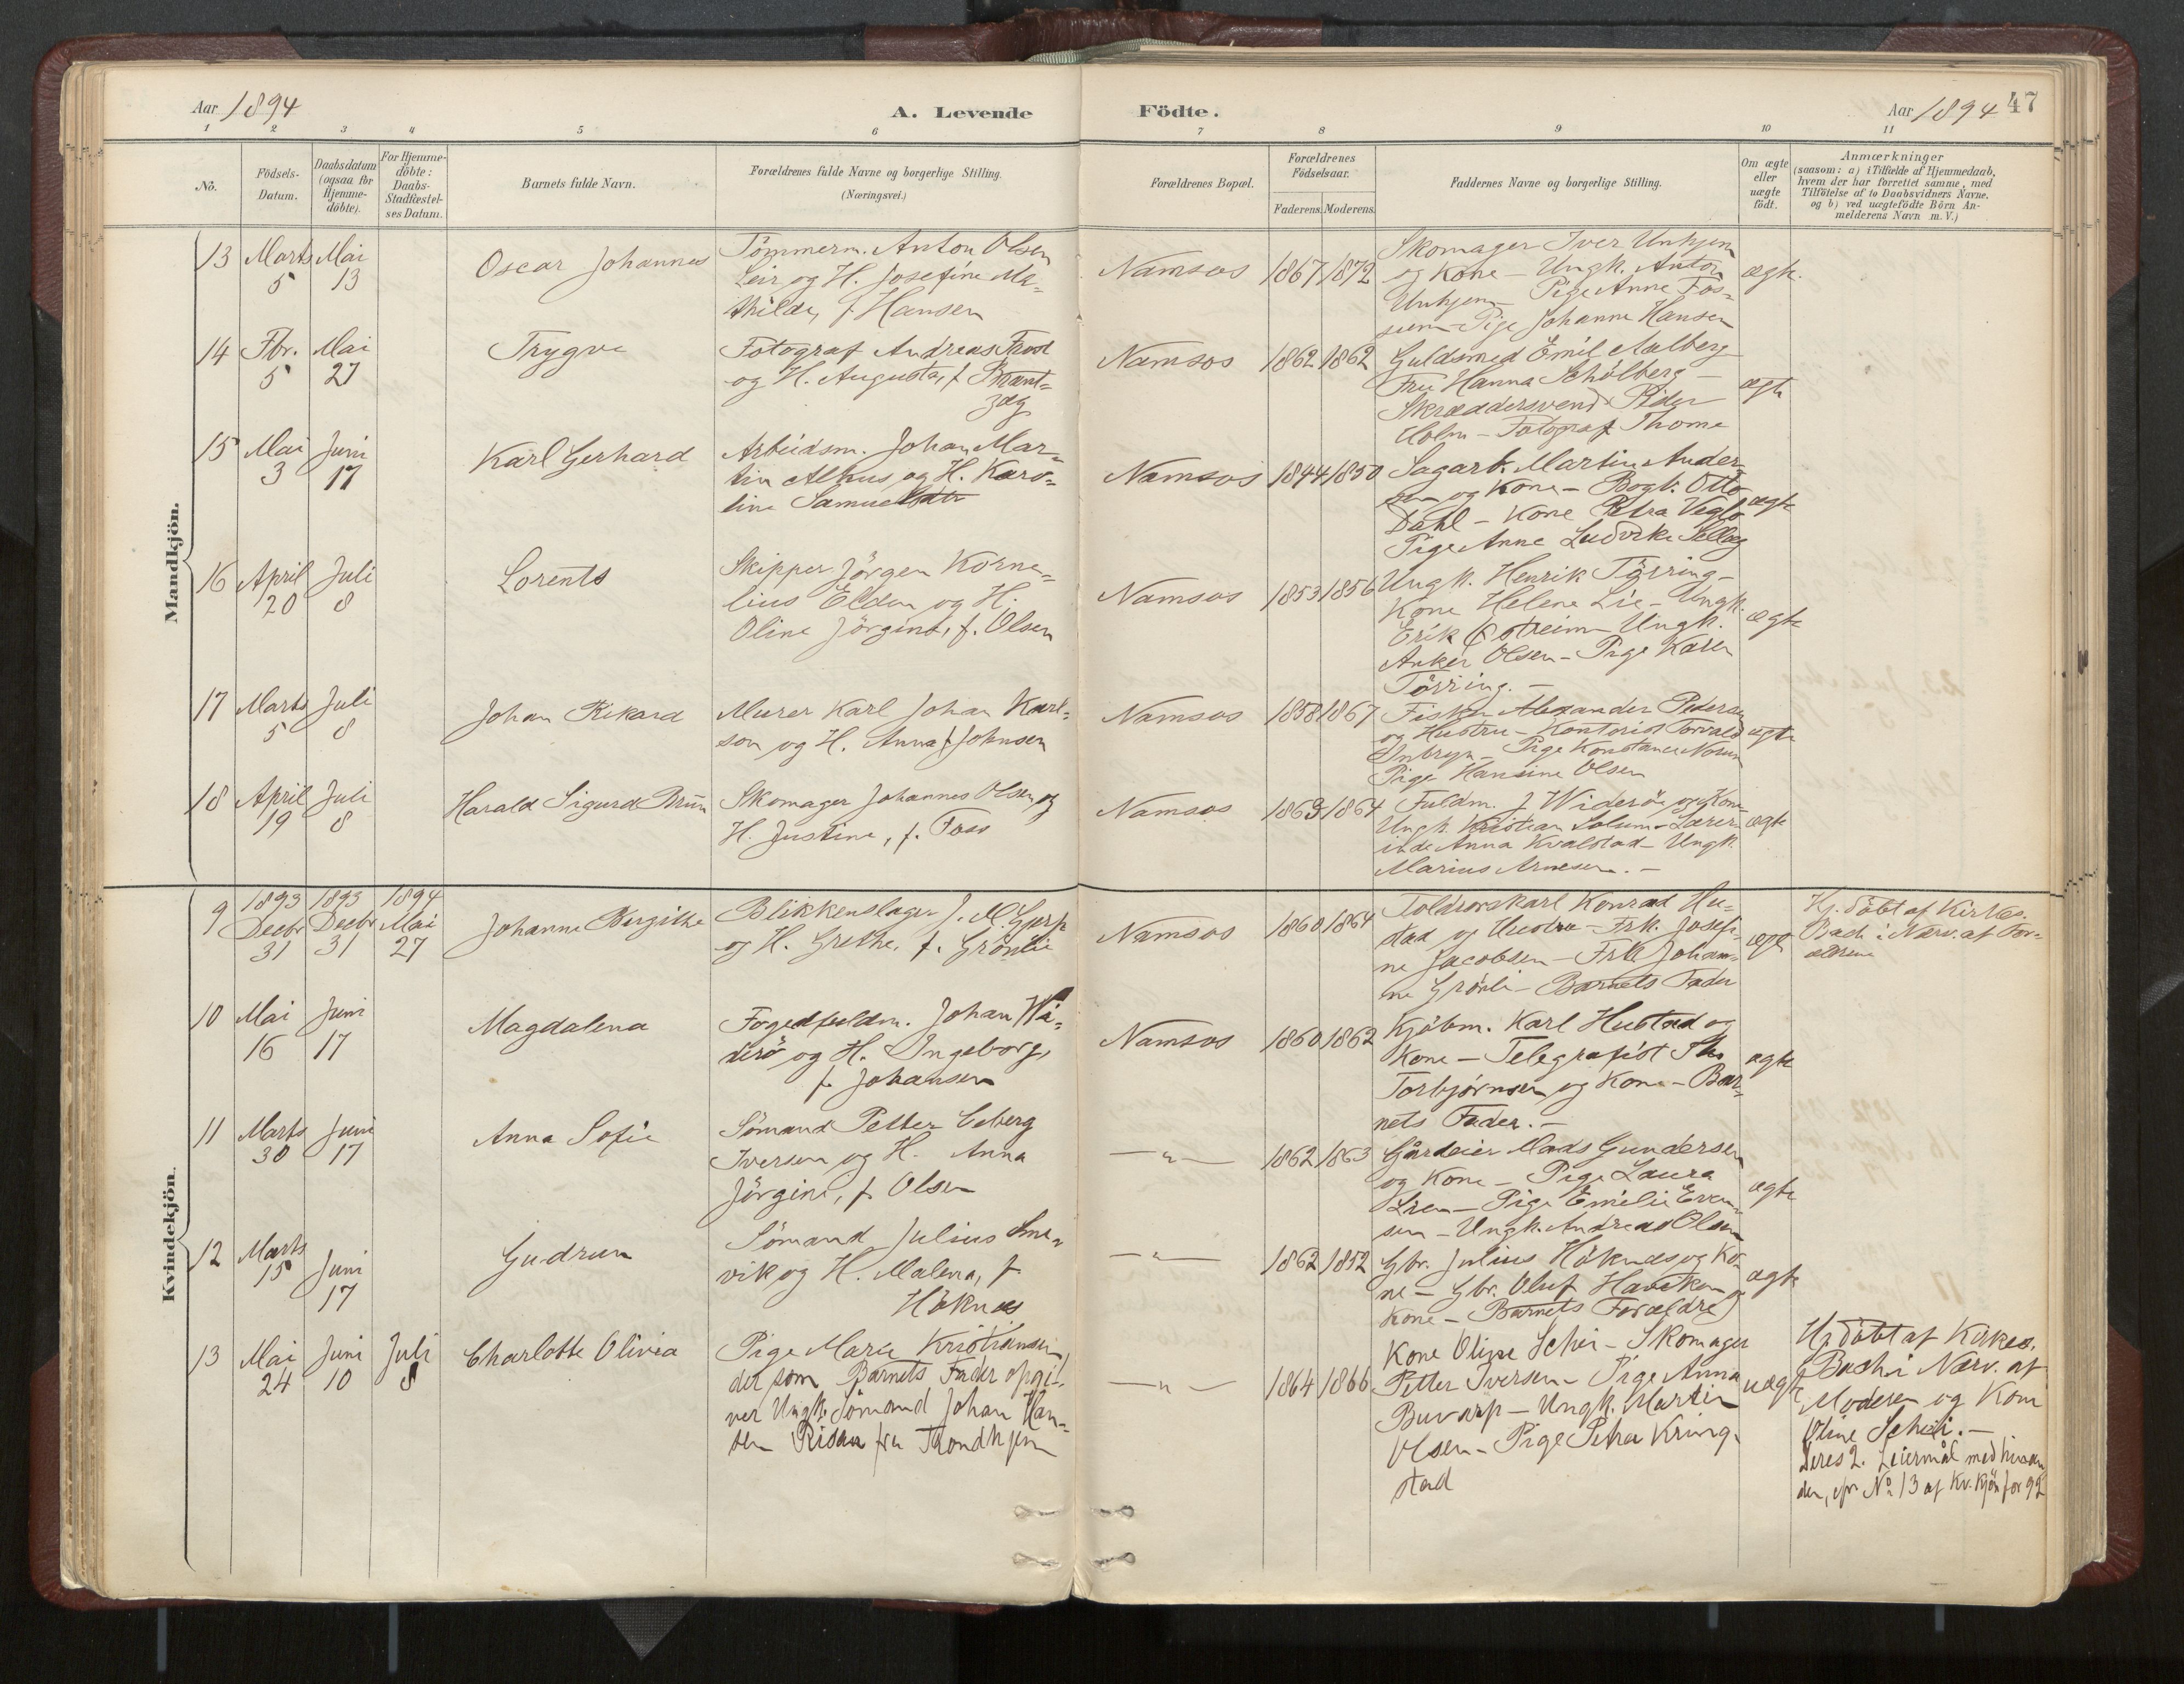 Aar 1894
A. Levende
Födte.
Aar 1894
47
1 2 3 4 5 6 7 8 9 10 11
No.
Födsels-
Datum.
Daabsdatum
(ogsaa for
Hjemme-
döbte).
For Hjemme-
döbte:
Daabs-
Stadfæstel-
ses Datum.
Barnets fulde Navn.
Forældrenes fulde Navne og borgerlige Stilling.
(Næringsvei.)
Forældrenes Bopæl.
Forældrenes
Födselsaar.
Faderens. Moderens.
Faddernes Navne og borgerlige Stilling.
Om ægte
eller
uægte
födt.
Anmærkninger
(saasom: a) i Tilfælde af Hjemmedaab,
hvem der har forrettet samme, med
Tilföielse af to Daabsvidners Navne.
og b) ved uægtefödte Börn An-
melderens Navn m. V.)
Mandkjön.
13 Marts 5 Mai 13
Oscar Johannes
Tömmerm. Anton Olsen
Leir og H. Josefine Ma-
thilde, f. Hansen
Namsos 1867 1872
Skomager Iver Unhjem
og Kone – Ungk. Anton
Unhjem – Pige Anne Fos-
sum – Pige Johanne Hansen
ægte
14 Fbr. 5 Mai 27
Trygve
Fotograf Andreas Frost
og H. Augusta, f. Brant-
zæg
Namsos 1862 1862
Guldsmed Emil Aalberg
Fru Hanna Schölberg –
Skræddersvend Peder
Holm – Fotograf Thome
ægte
15 Mai 3 Juni 17
Karl Gerhard
Arbeidsm. Johan Mar-
tin Alhus og H. Karo-
line Samuelsdtr
Namsos 1844 1850
Sagarb. Martin Ander-
sen og Kone – Bogb. Otto
Dahl – Kone Petra
Pige Anne Ludvike Selleg
ægte
16 April 20 Juli 8
Lorents
Skipper Jörgen Korne-
lius Elden og H.
Oline Jörgine, f. Olsen
Namsos 1853 1856
Ungk. Henrik Törring –
Kone Helene Lie – Ungk.
Erik Østreim Ungk.
Anker Olsen – Pige Karen
Törring. –
ægte
17 Marts 5 Juli 8
Johan Rikard
Murer Karl Johan Karl-
son og H. Anna f. Johnsen
Namsos 1858 1867
Fisker Alexander Pedersen
og Hustru – Kontorist Torvald
Inbryn – Pige Konstance Norum
Pige Hansine Olsen
ægte
18 April 19 Juli 8
Harald Sigurd Brun
Skomager Johannes Olsen og
H. Justine, f. Foss
Namsos 1863 1864
Fuldm. J Wideröe og Kone
Ungk. Kristian Solum – Lærer-
inde Anna Kvalstad – Ungk.
Marius Arnesen. –
ægte
Kvindekjön.
9 1893 Decbr 31 1893 Decbr 31 1894 Mai 27
Johanne Bergithe
Blikkenslager J. M. Gjerp
og H. Grethe, f. Grönlie
Namsos 1860 1864
Toldrorskarl Konrad Hu-
stad og Hustru – Frk. Josefi-
ne Jacobsen – Frk Johan-
ne Grönli – Barnets Fader
ægte
Hj. döbt af Kirkes.
Bach i Nærv. af For-
ældrene
10 Mai 16 Juni 17
Magdalena
Fogedfuldm. Johan Wi-
derö og H. Ingeborg,
f. Johansen
Namsos 1860 1862
Kjöbm. Karl Hustad og
Kone – Telegrafist Th.
Torbjörnsen og Kone – Bar-
nets Fader. –
ægte
11 Marts 30 Juni 17
Anna Sofie
Sömand Petter Edberg
Iversen og H. Anna
Jörgine, f. Olsen
—"— 1862 1863
Gårdeier Mads Gundersen
og Kone – Pige Laura
Lien – Pige Emilie Even-
sen – Ungk. Andreas Olsen
ægte
12 Marts 15 Juni 17
Gudrun
Sömand Julius Sme-
vik og H. Malena, f.
Höknes
—"— 1862 1852
Gbr. Julius Höknes og Ko-
ne – Gbr. Oluf Haviken og
Kone – Barnets Forældre
ægte
13 Mai 24 Juni 10 Juli 8
Charlotte Olivia
Pige Marie Kristiansen,
der som Barnets Fader opgi-
ver Ungk. Sömand Johan Han-
sen Risan fra Trondhjem
—"— 1864 1866
Kone Oline Schei – Skomager
Petter Iversen – Pige Anna
Buvarp – Ungk. Martin
Olsen – Pige Petra Kring-
stad
uægte
Hj. döbt af Kirkes.
Bach i Nærv. af
Moderen og Kone
Oline Schei. –
Deres 2. Leiermål med hinan
den, cfr No 13 af Kv. kjön for 92